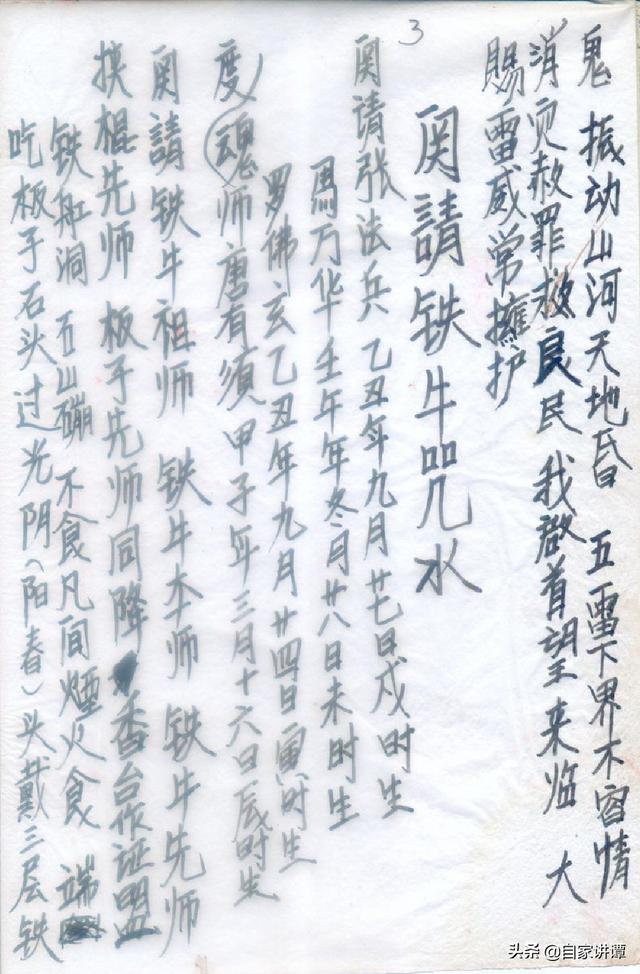 3
鬼 振动山河天地昏 五雷下界不容情
消灾赦罪救良民 我啟首望来临 大
賜雷威常擁护
関請铁牛咒水
関请张法兵 乙丑年九月廿七日戍时生
馬万华壬午年冬月廿八日未时生
罗佛玄乙丑年九月廿四日寅时生
度(魂)师唐有須 甲子年三月十六日辰时生
関請铁牛祖师 铁牛本师 铁牛先师
挟棍先师 板子先师同降 香台作证盟
铁船洞 石山磞 不食凡间煙火食 端
吃板子石头过光阴(阳春)头戴三层铁
头条 @自家讲谭